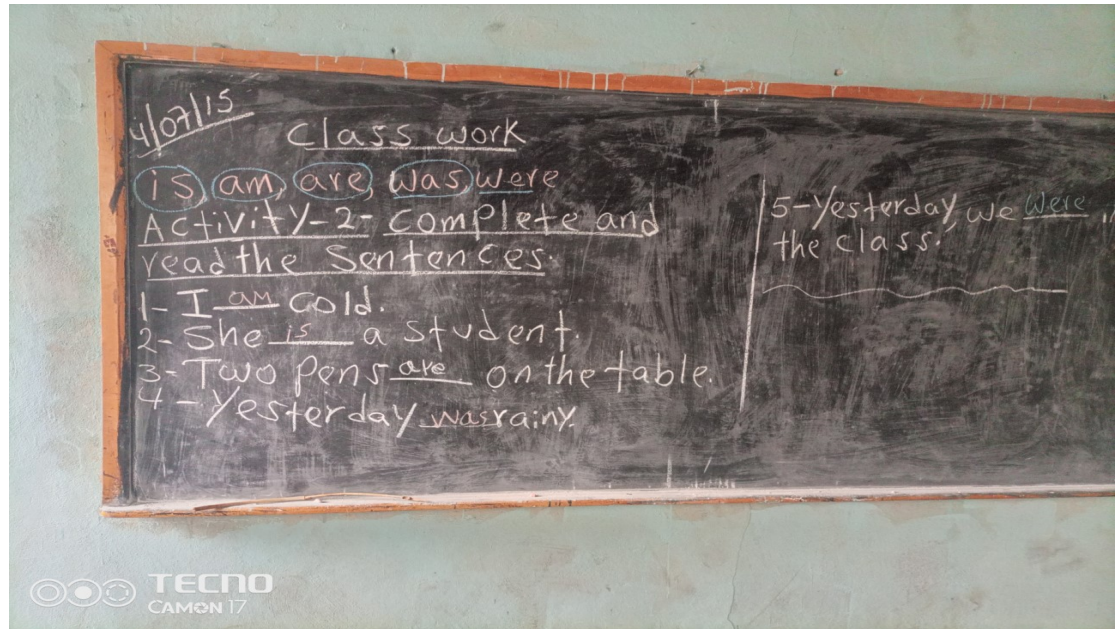 4/07/15
Class work
is, am, are, was, were
Activity-2- complete and
read the Sentences.
1- I am cold.
2- She is a student.
3- Two Pens are on the table.
4- Yesterday was rainy.
5-Yesterday, we were
the class.
TECNO
CAMON 17